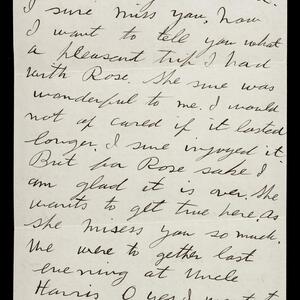 I sure miss you, now
I want to tell you what
a pleasent trip I had
with Rose. She sure was
wonderful to me. I would
not of cared if it lasted
longer. I sure injoyed it.
But for Rose sake I
am glad it is over. She
wants to get true here. as
she misess you so much.
We were to gether last
evening at Uncle
Harris. O yes I